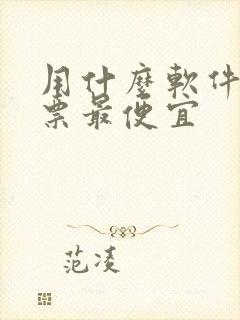 用什麼軟件
票最便宜
范凌